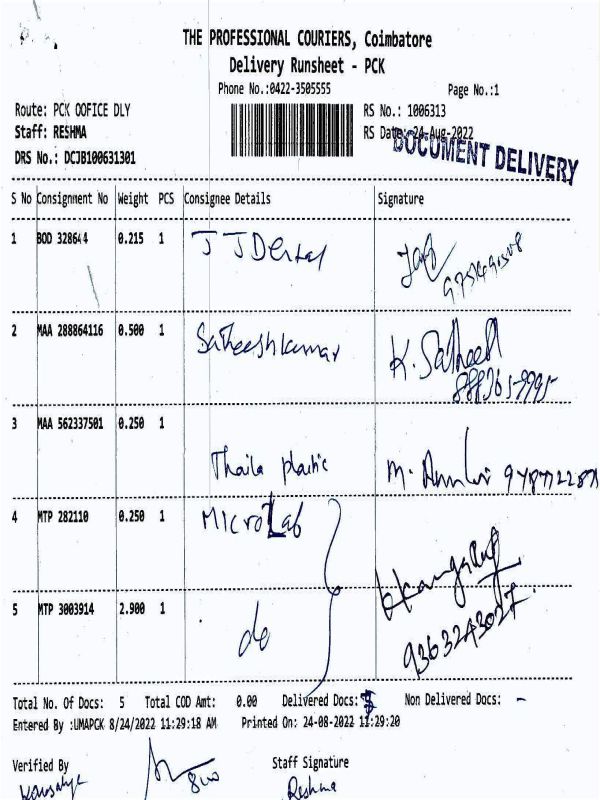 THE PROFESSIONAL COURIERS, Coimbatore
Delivery Runsheet - PCK
Phone No.:0422-3505555 Page No.:1
Route: PCK OOFICE DLY RS No.: 1006313
Staff: RESHMA RS Date: 24-Aug-2022
DOCUMENT DELIVERY
DRS No.: DCJB100631301
S No Consignment No Weight PCS Consignee Details Signature
1 BOD 328644 0.215 1 J J Dental
2 MAA 288864116 0.500 1 Satheeshkumar K. Satheesh
3 MAA 562337501 0.250 1
Thaila plastic M.
4 MTP 282110 0.250 1 Micro Lab
5 MTP 3003914 2.900 1 do
9363243027
Total No. Of Docs: 5 Total COD Amt: 0.00 Delivered Docs: Non Delivered Docs: -
Entered By :UMAPCK 8/24/2022 11:29:18 AM Printed On: 24-08-2022 11:29:20
Verified By Staff Signature
Reshma